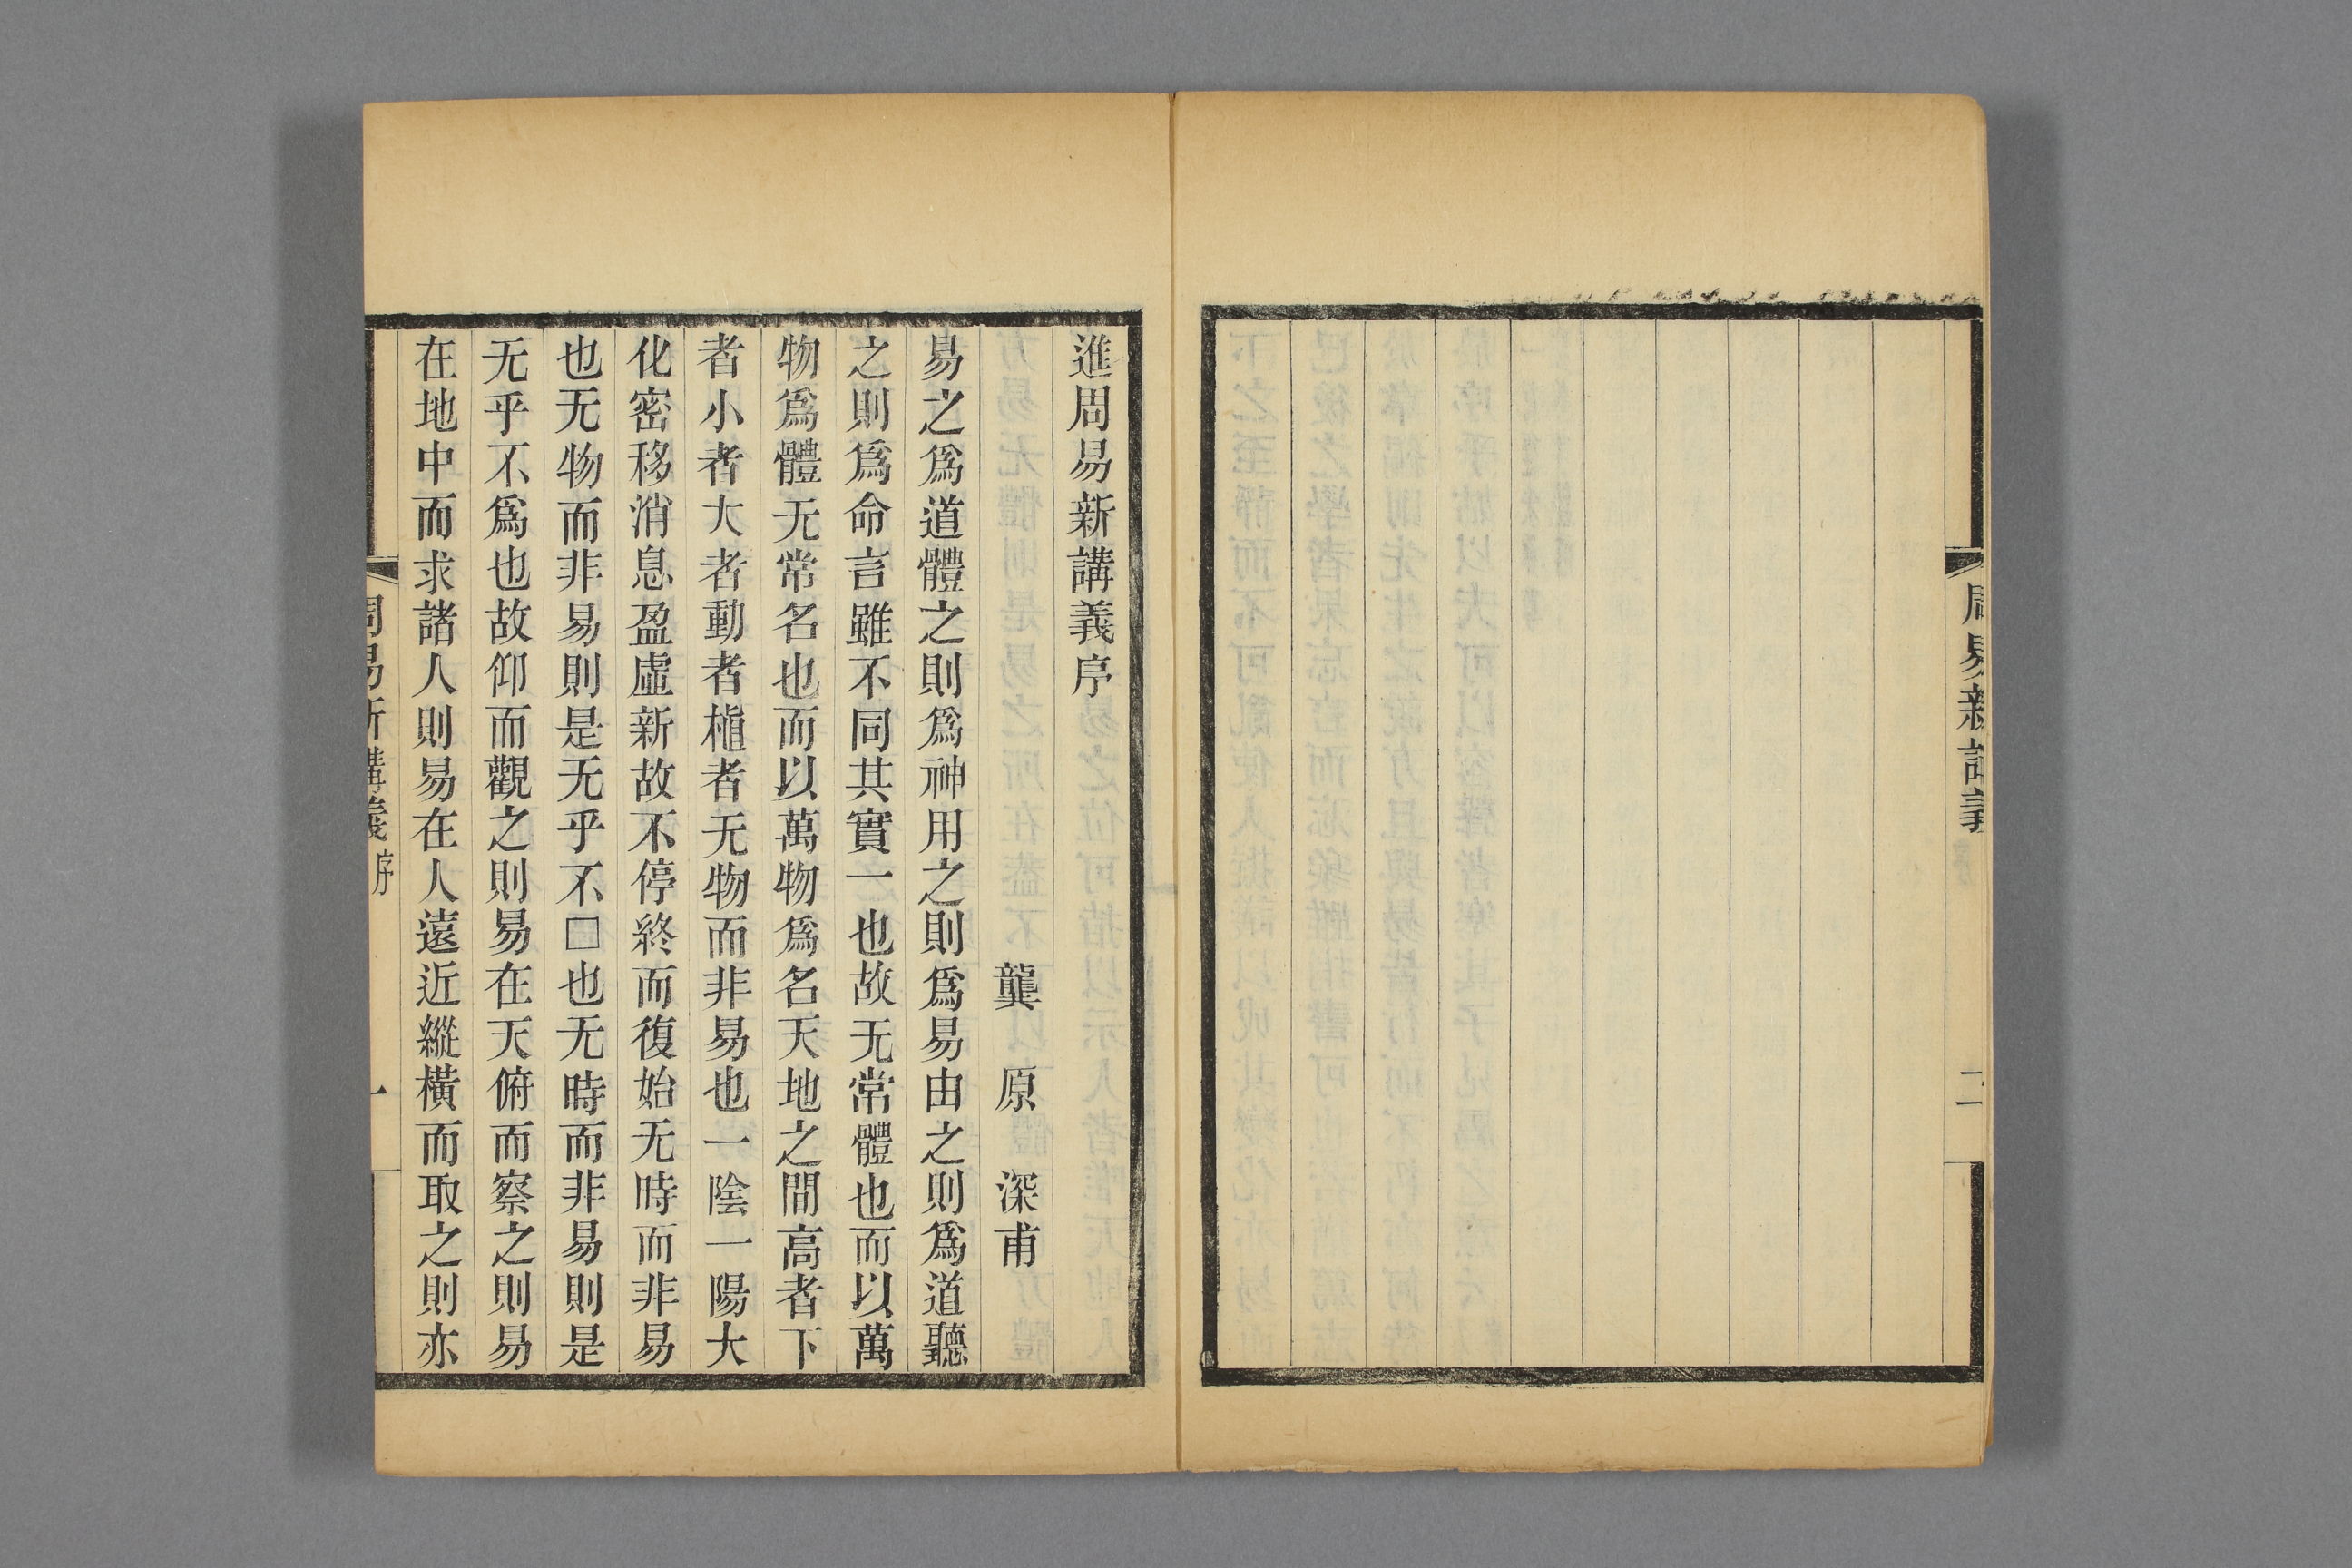 周易新講義
二
進周易新講義序
龔原深甫
易之爲道體之則爲神用之則爲易由之則爲道聽
之則爲命言雖不同其實一也故无常體也而以萬
物爲體无常名也而以萬物爲名天地之間高者下
者小者大者動者植者无物而非易也一陰一陽大
化密移消息盈虛新故不停終而復始无時而非易
也无物而非易則是无乎不□也无時而非易則是
无乎不爲也故仰而觀之則易在天俯而察之則易
在地中而求諸人則易在人遠近縱橫而取之則亦
周易新講義序
一